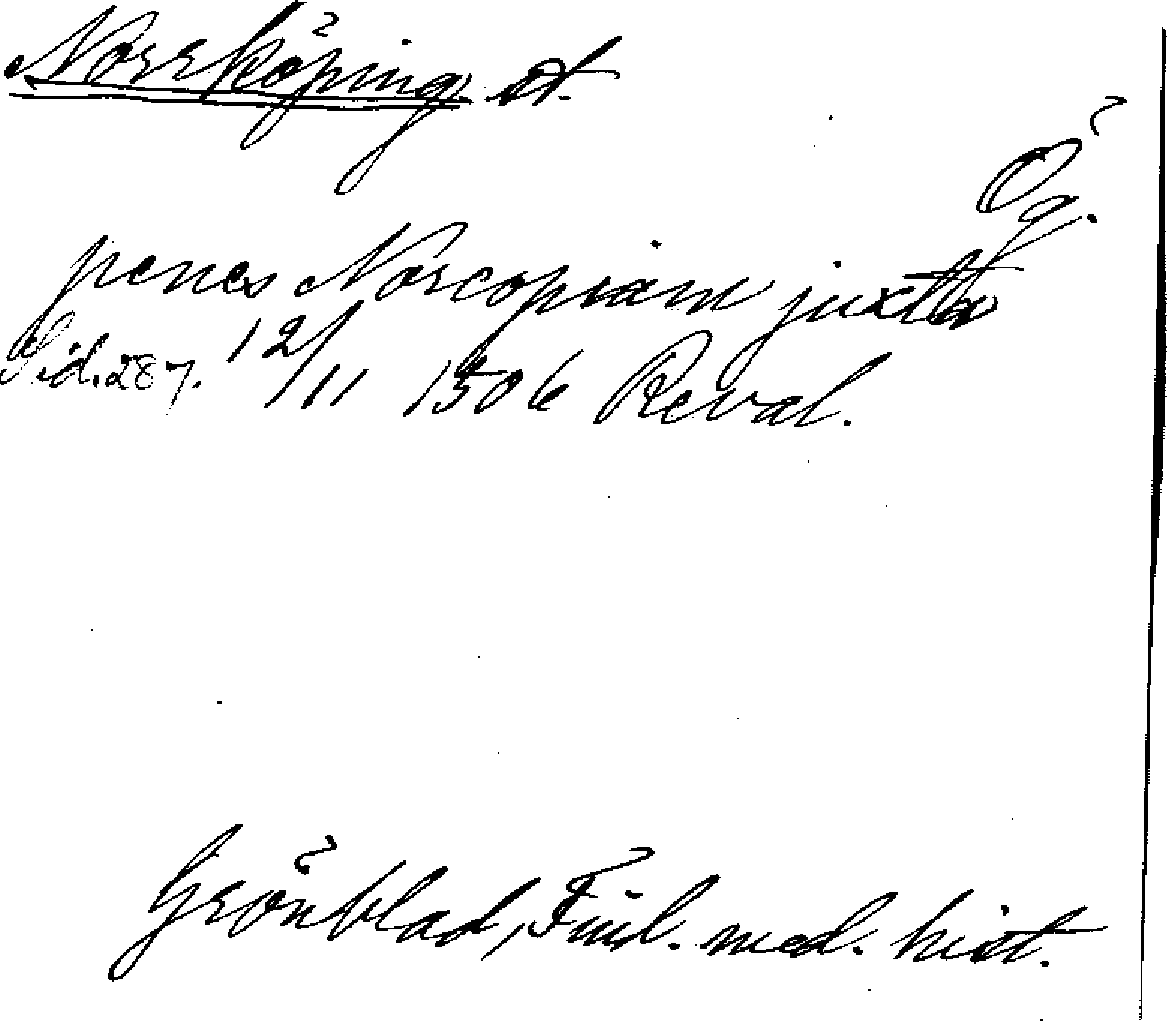 Norrköping st.
Ög.
penes Norcopiam juxta
Sid. 287. 12/11 1506 Reval.
Grönblad, Finl. med. hist.